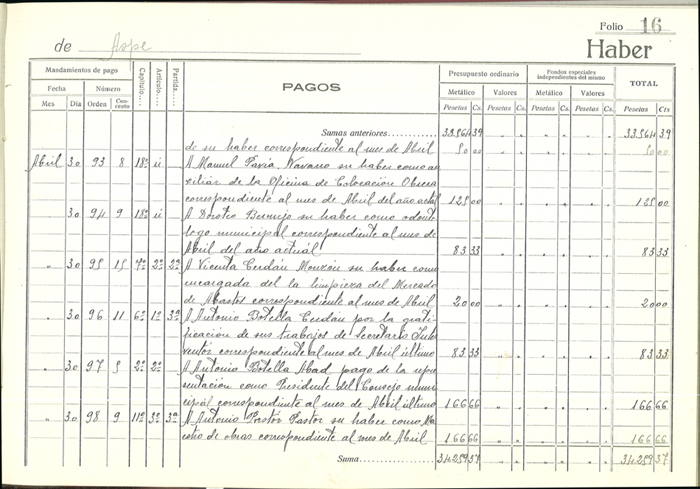 Folio 16
de Aspe
Haber
Mandamientos de pago
Fecha Número
Mes Día Orden Concepto
Capítulo.... Artículo.... Partida....
PAGOS
Presupuesto ordinario Fondos especiales independientes del mismo TOTAL
Metálico Valores Metálico Valores
Pesetas Cs. Pesetas Cs. Pesetas Cs. Pesetas Cs. Pesetas Cts
Sumas anteriores
de su haber correspondiente al mes de Abril 50 00 50 00
Abril 30 93 8 18º u A Manuel Pavía Navarro su haber como au
xiliar de la Oficina de Colocación Obrera
correspondiente al mes de Abril del año actual 125 00 125 00
30 94 9 18º u A Doroteo Bermejo su haber como odontó
logo municipal correspondiente al mes de
Abril del año actuál 83 33 83 33
" 30 95 15 4º 2º 2ª A Vicenta Cerdán Monzón su haber como
encargada del la limpieza del Mercado
de Abastos correspondiente al mes de Abril 20 00 20 00
" 30 96 11 6º 1º 3ª A Antonio Botella Cerdán por la grati
ficación de sus trabajos de Secretario Inter
ventor correspondiente al mes de Abril último 83 33 83 33
" 30 97 5 2º 2º A Antonio Botella Abad pago de la repre
sentación como Presidente del Consejo muni
cipal correspondiente al mes de Abril último 166 66 166 66
" 30 98 9 11º 3º 3ª A Antonio Pastor Pastor su haber como Ma
estro de obras correspondiente al mes de Abril 166 66 166 66
Suma 34.259 37 34.259 37